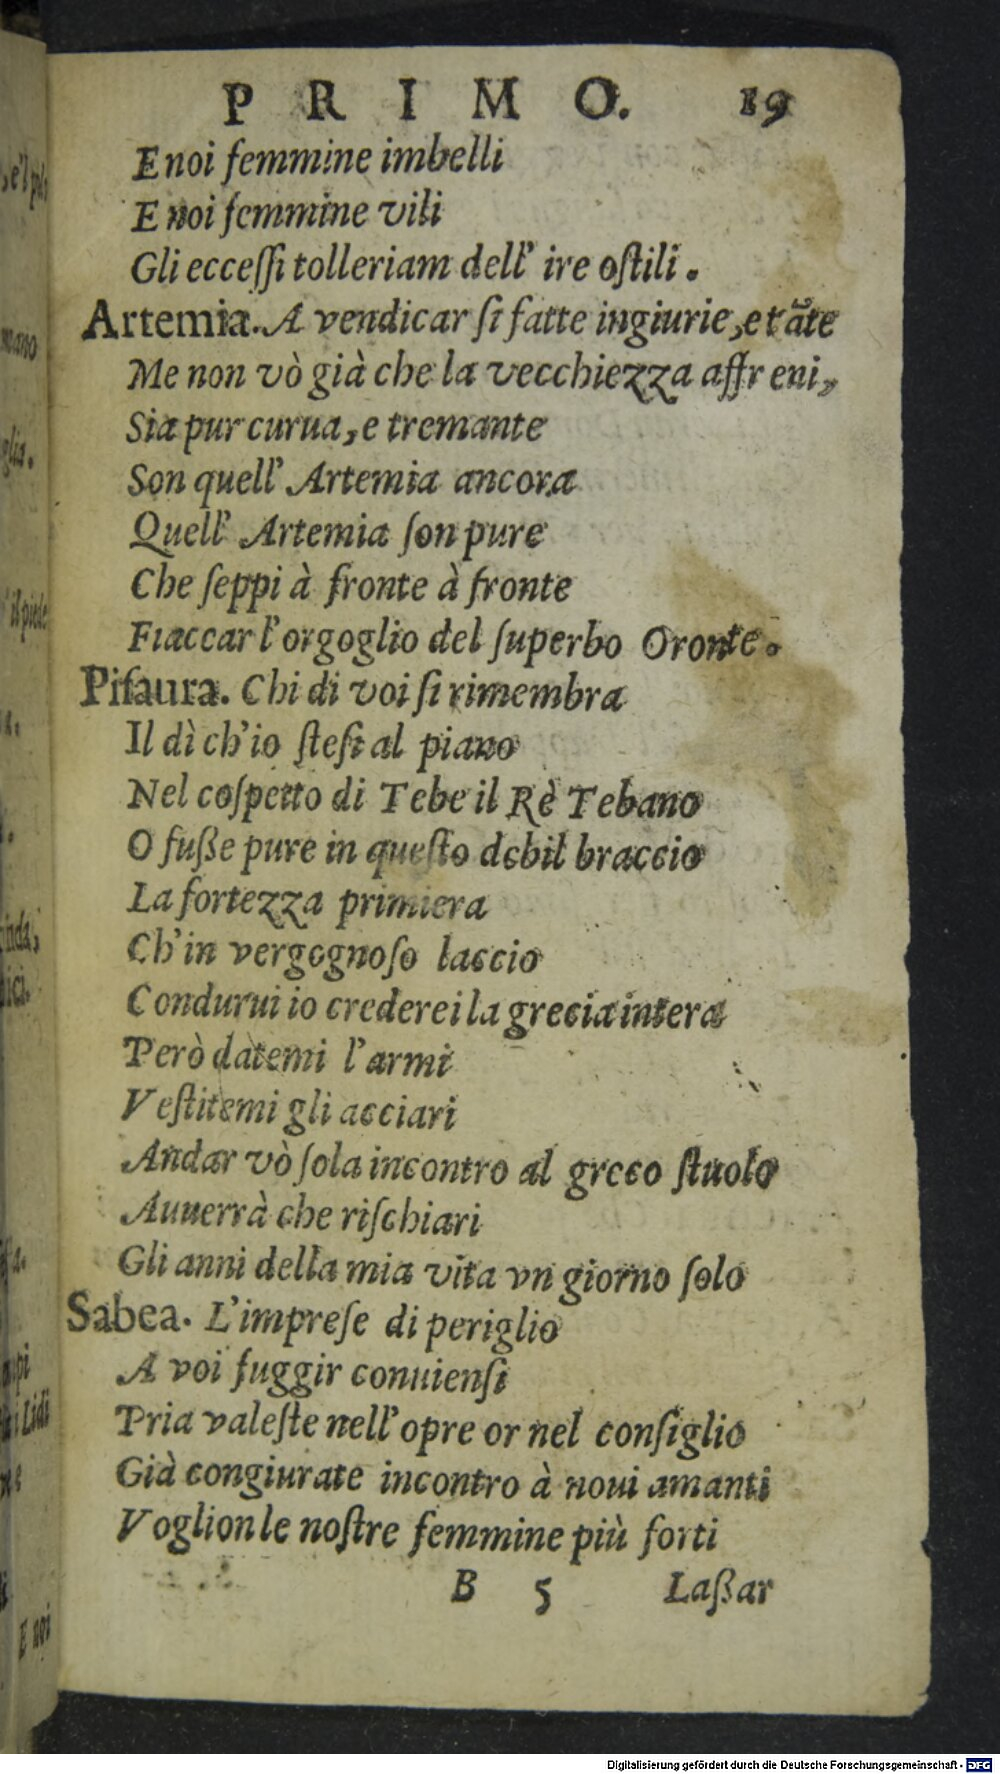 PRIMO. 19
E noi femmine imbelli
E noi femmine vili
Gli ecceſſi tolleriam dell' ire oſtili.
Artemia. A vendicar ſi fatte ingiurie, e tãte
Me non vò già che la vecchiezza affreni,
Sia pur curua, e tremante
Son quell' Artemia ancora
Quell' Artemia ſon pure
Che ſeppi à fronte à fronte
Fiaccar l'orgoglio del ſuperbo Oronte.
Piſaura. Chi di voi ſi rimembra
Il dì ch'io ſteſi al piano
Nel coſpetto di Tebe il Rè Tebano
O fuße pure in queſto debil braccio
La fortezza primiera
Ch'in vergognoſo laccio
Condurui io crederei la grecia intera
Però datemi l'armi
Veſtitemi gli acciari
Andar vò ſola incontro al greco ſtuolo
Auuerrà che riſchiari
Gli anni della mia vita vn giorno ſolo
Sabea. L'impreſe di periglio
A voi fuggir conuienſi
Pria valeſte nell' opre or nel conſiglio
Già congiurate incontro à noui amanti
Voglion le noſtre femmine più forti
B 5 Laßar
Digitalisierung gefördert durch die Deutsche Forschungsgemeinschaft - DFG